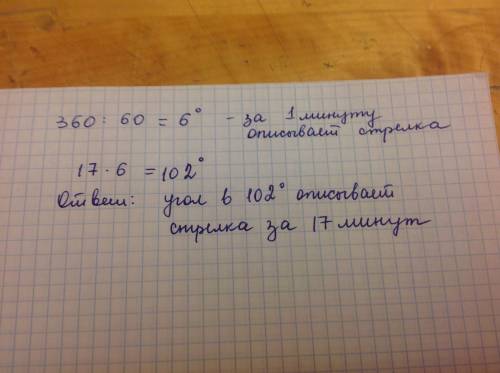 360 : 60 = 6° - за 1 минуту
описывает стрелка
17 · 6 = 102°
Ответ: угол в 102° описывает
стрелка за 17 минут